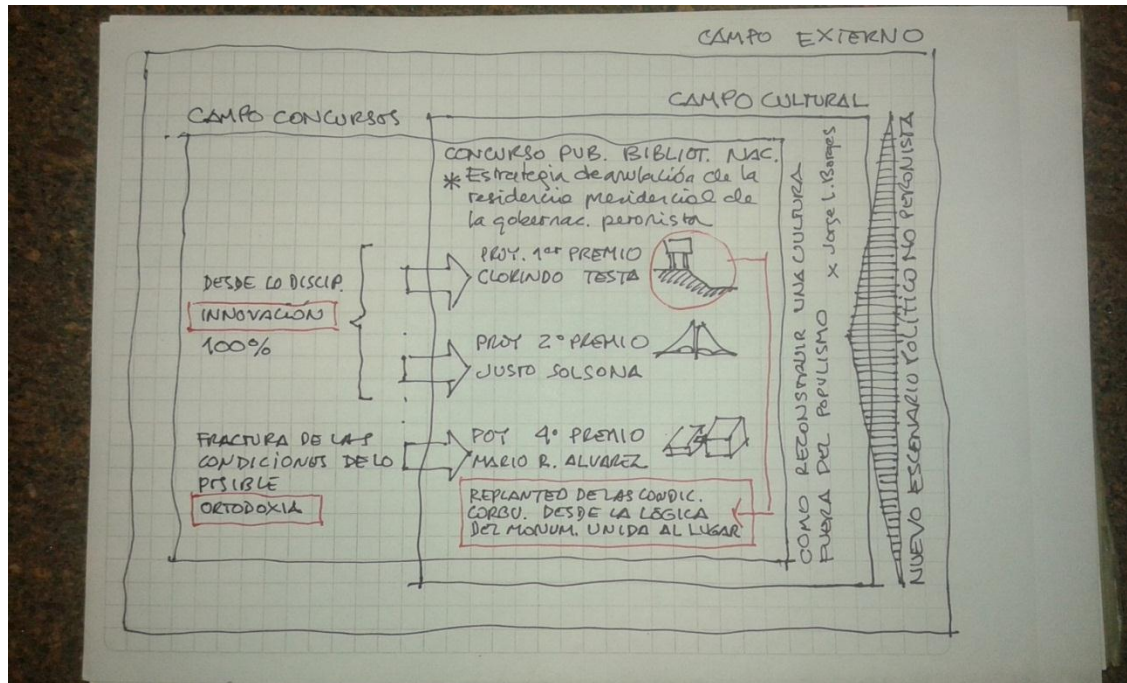 CAMPO EXTERNO
CAMPO CULTURAL
CAMPO CONCURSOS
CONCURSO PUB. BIBLIOT. NAC.
* Estrategia de anulación de la
residencia presidencial de
la gobernac. peronista
DESDE LO DISCIP.
INNOVACIÓN
100%
PROY. 1er PREMIO
CLORINDO TESTA
PROY 2° PREMIO
JUSTO SOLSONA
FRACTURA DE LAS
CONDICIONES DE LO
POSIBLE
ORTODOXIA
POY 4° PREMIO
MARIO R. ALVAREZ
REPLANTEO DE LAS CONDIC.
CORBU. DESDE LA LÓGICA
DEL MONUM. UNIDA AL LUGAR
COMO RECONSTRUIR UNA CULTURA
FUERA DEL POPULISMO x Jorge L. Borges
NUEVO ESCENARIO POLÍTICO NO PERONISTA